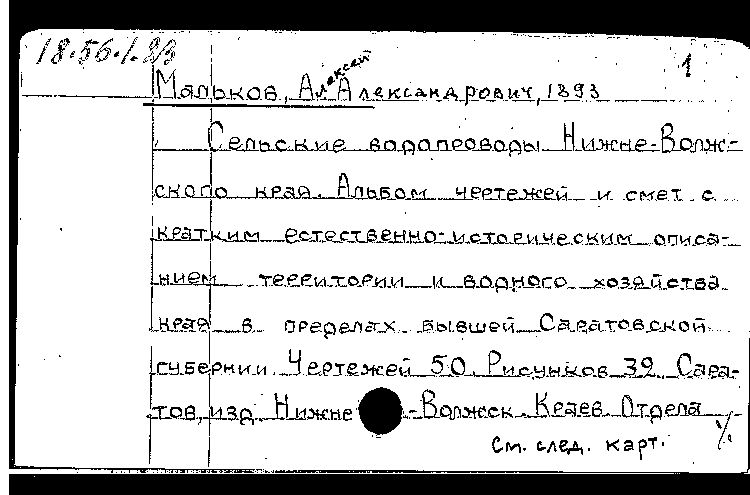 18.56.1.23
1
Мальков, Алексей Александрович, 1893
Сельские водопроводы Нижне-Волж-
ского края. Альбом чертежей и смет с
кратким естественно-историческим описа-
нием территории и водного хозяйства
края в пределах бывшей Саратовской
губернии. Чертежей 50. Рисунков 39. Сара-
тов, изд. Нижне-Волжск. Краев. Отдела
См. след. карт. %